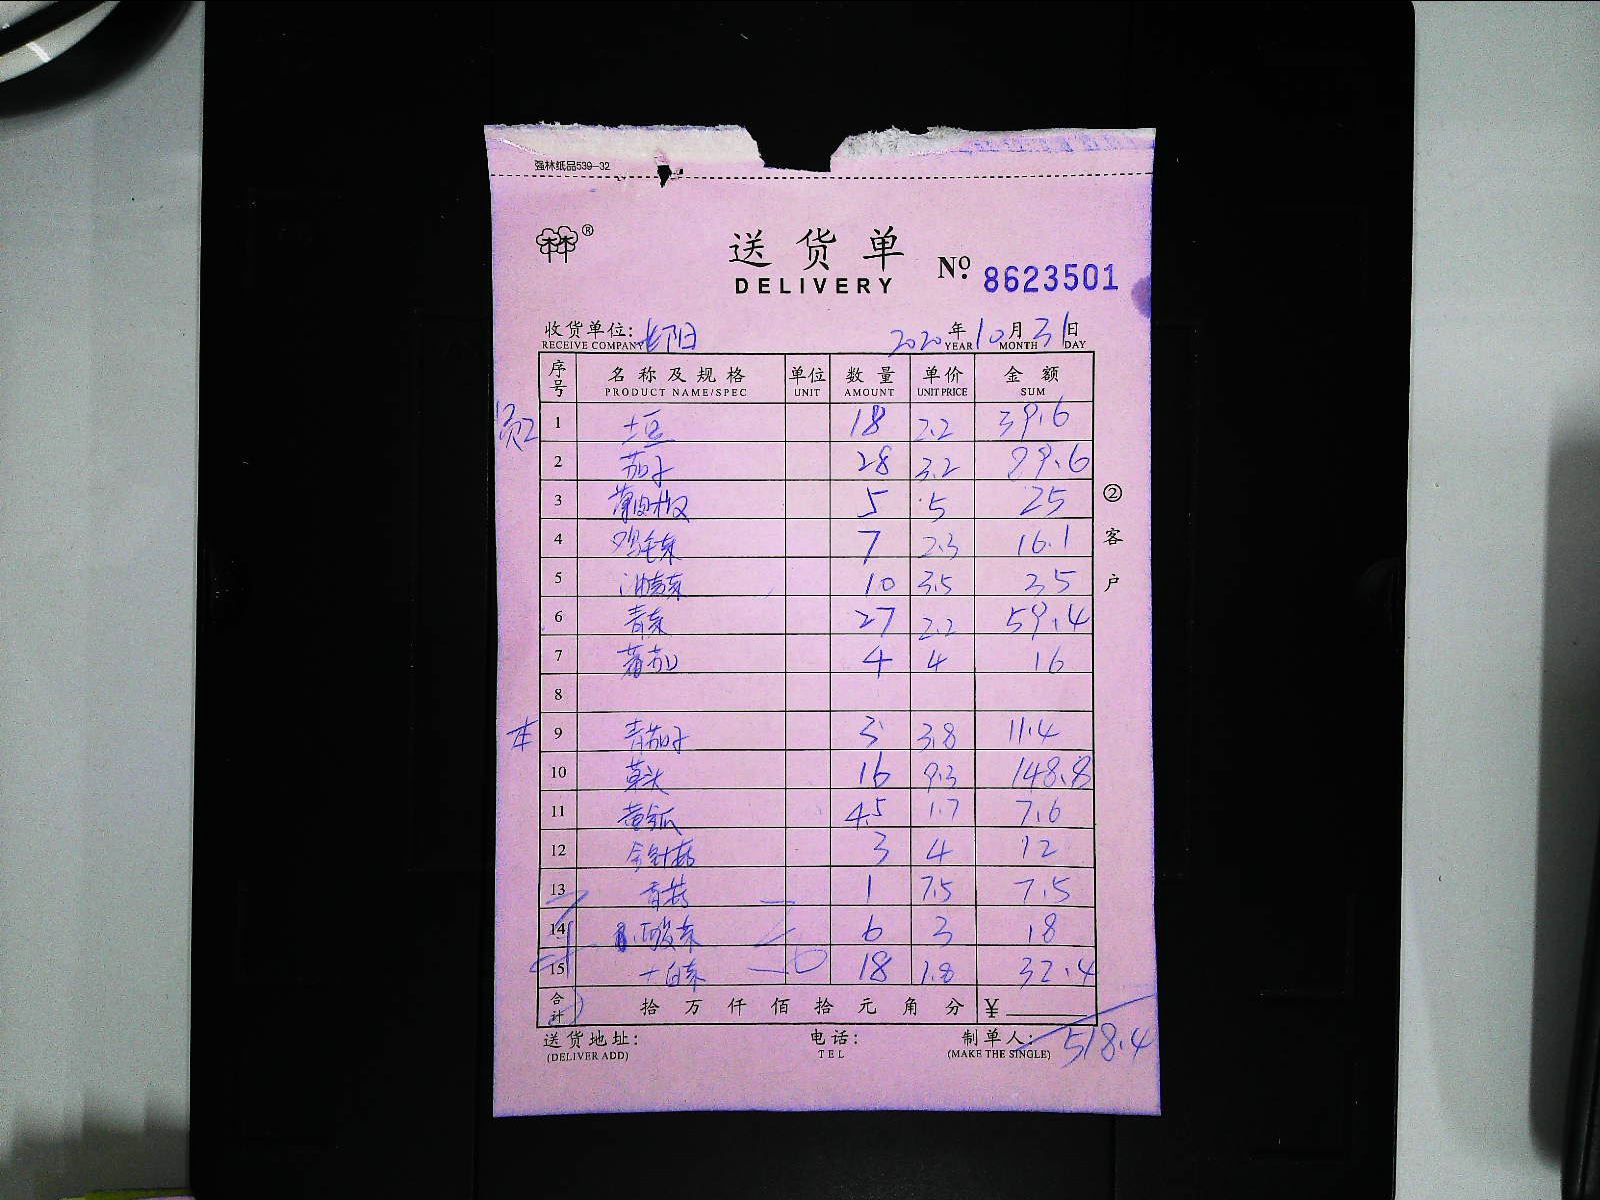 强林纸品539-32
林林®
送货单
DELIVERY
No. 8623501
收货单位: 2020年10月31日
RECEIVE COMPANY YEAR MONTH DAY
序号 名称及规格 单位 数量 单价 金额
PRODUCT NAME/SPEC UNIT AMOUNT UNIT PRICE SUM
1 土豆 18 2.2 39.6
2 茄子 28 3.2 89.6
3 薄皮椒 5 5 25
4 鸡毛菜 7 2.3 16.1
5 油麦菜 10 3.5 35
6 青菜 27 2.2 59.4
7 蕃茄 4 4 16
8
本 9 青茄子 3 3.8 11.4
10 草头 16 9.3 148.8
11 黄瓜 4.5 1.7 7.6
12 金针菇 3 4 12
13 香菇 1 7.5 7.5
14 酸菜 6 3 18
15 大白菜 18 1.8 32.4
合计 拾万仟佰拾元角分 ¥
②客户
送货地址: 电话: 制单人: 518.4
(DELIVER ADD) TEL (MAKE THE SINGLE)